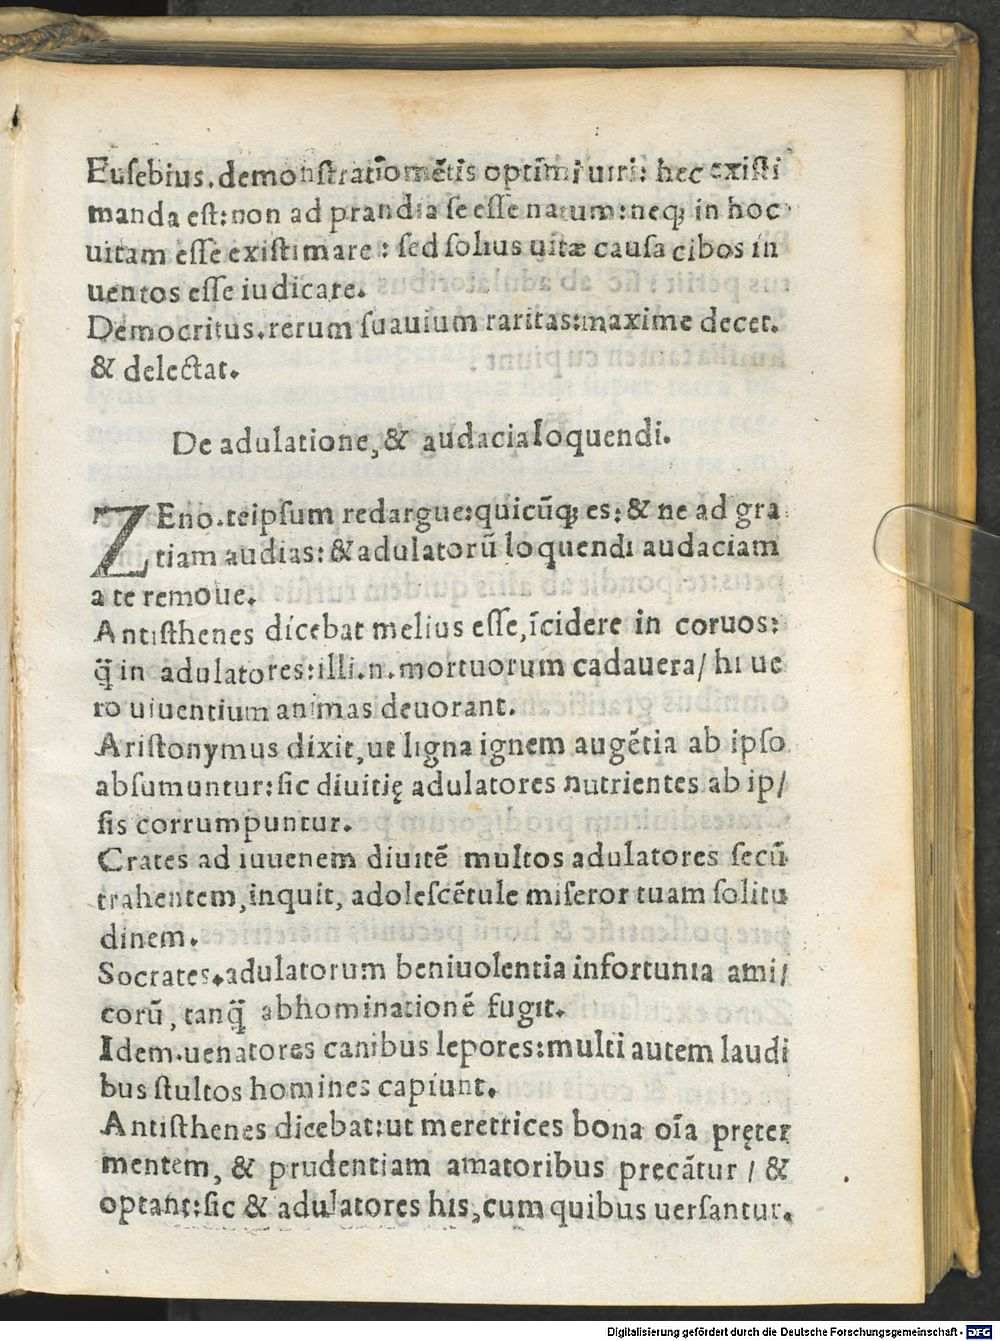 Euſebius.demonſtratiōomētis optīmi uiri: hec exiſti
manda eſt:non ad prandia ſe eſſe natum:neq; in hoc
uitam eſſe exiſtimare: ſed ſolius uitæ cauſa cibos in
uentos eſſe iudicare.
Democritus.rerum ſuauium raritas:maxime decet.
& delectat.
De adulatione,& audacia loquendi.
ZEno.teipſum redargue:quicūq; es:& ne ad gra
tiam audias:& adulatorū loquendi audaciam
a te remoue.
Antiſthenes dicebat melius eſſe,īcidere in coruos:
q̄ in adulatores:illi.n.mortuorum cadauera/hi ue
ro uiuentium animas deuorant.
Ariſtonymus dixit,ut ligna ignem augētia ab ipſo
abſumuntur:ſic diuitię adulatores nutrientes ab ip/
ſis corrumpuntur.
Crates ad iuuenem diuitē multos adulatores ſecū
trahentem,inquit, adoleſcētule miſeror tuam ſolitu
dinem.
Socrates.adulatorum beniuolentia infortunia ami/
corū,tanq̄ abhominationē fugit.
Idem.uenatores canibus lepores:multi autem laudi
bus ſtultos homines capiunt.
Antiſthenes dicebat:ut meretrices bona oīa pręter
mentem, & prudentiam amatoribus precātur / &
optant:ſic & adulatores his,cum quibus uerſantur.
Digitalisierung gefördert durch die Deutsche Forschungsgemeinschaft - DFG